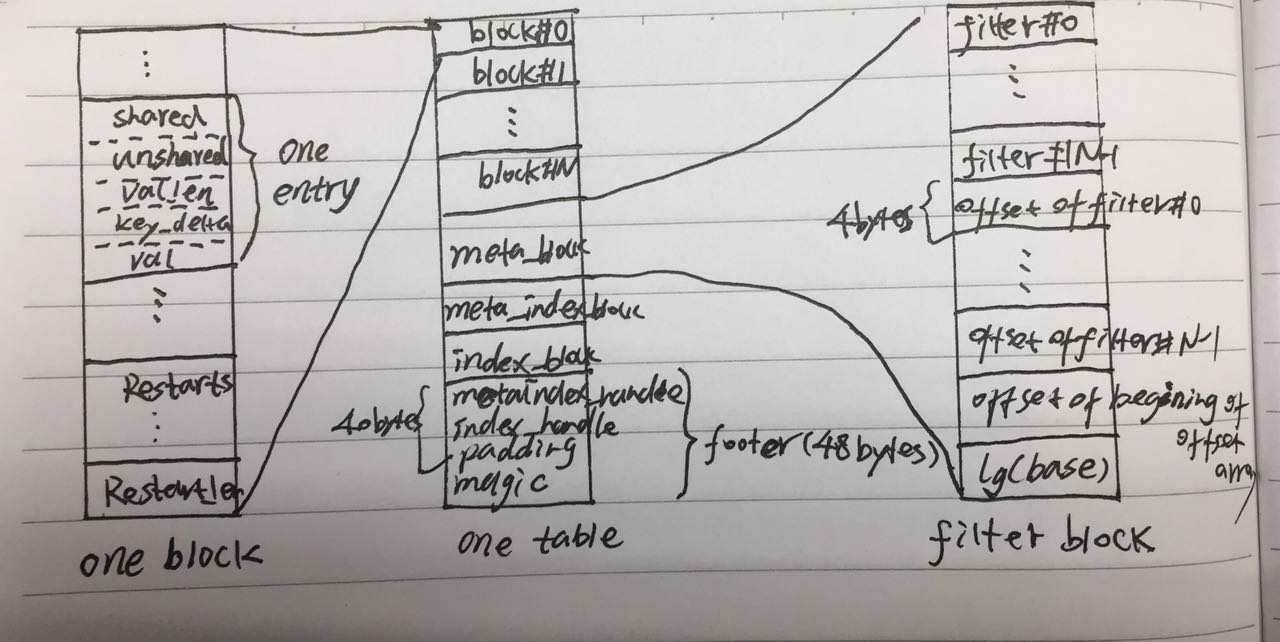 ⋮
shared
unshared
vallen
key_delta
val
⋮
Restarts
⋮
Restart_len
one
entry
one block
block#0
block#1
⋮
block#N
meta_block
meta_index_block
index_block
metaindex_handle
index_handle
padding
magic
40bytes
footer(48bytes)
one table
filter#0
⋮
filter#N-1
offset of filter#0
4bytes
⋮
offset of filter#N-1
offset of begining of
offset
array
lg(base)
filter block